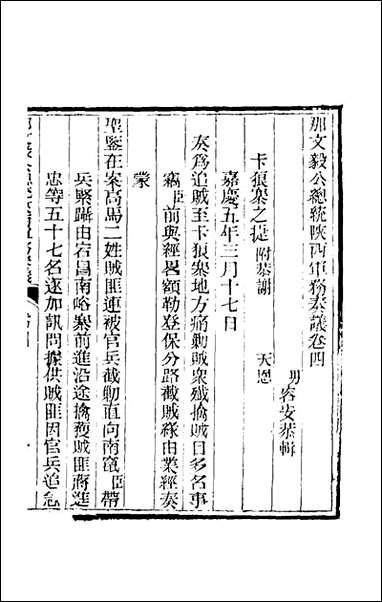 那文毅公總統陝西軍務奏議卷四
男容安恭輯
卡狼寨之捷 附恭謝 天恩
嘉慶五年三月十七日
奏爲追賊至卡狼寨地方痛勦賊衆殲擒賊目多名事
竊臣前與經畧額勒登保分路截賊緣由業經奏
蒙
聖鑒在案高馬二姓賊匪連被官兵截勦直向南竄臣帶
兵緊躡由宕昌南峪寨前進沿途擒獲賊匪蔣進
忠等五十七名逐加訊問據供賊匪因官兵追急